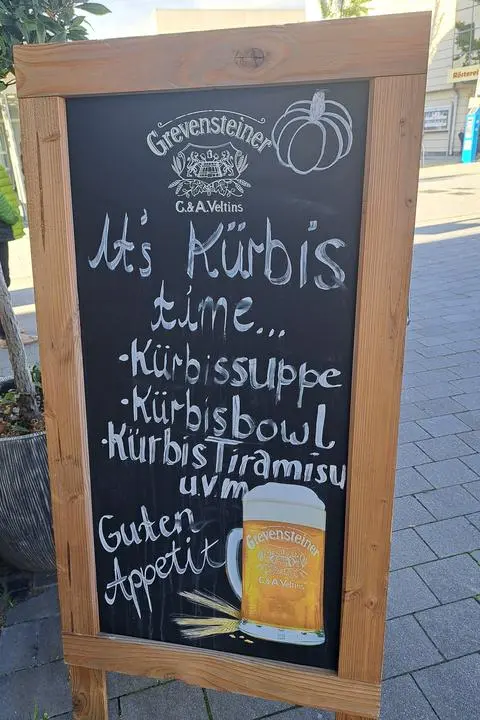 Grevensteiner
C.&A.Veltins
It's Kürbis
time...
·Kürbissuppe
·Kürbisbowl
·Kürbis Tiramisu
uvm
Guten
Appetit
Grevensteiner
C.&A.Veltins
Rösterei